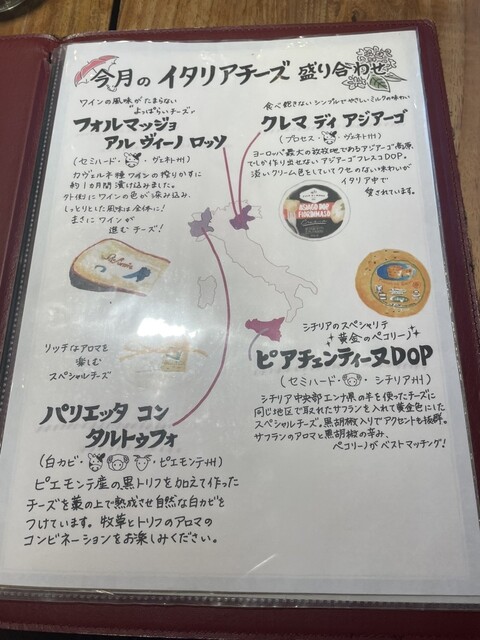 今月の イタリアチーズ 盛り合わせ
ワインの風味がたまらない
"よっぱらいチーズ"
フォルマッジョ
アル ヴィーノ ロッソ
(セミハード・ ・ヴェネト州)
カヴェルネ種ワインの搾りかすに
約1カ月間漬け込みました。
外側にワインの色が染み込み、
しっとりとした風味は全体に!
まさにワインが
進むチーズ!
食べ飽きないシンプルでやさしいミルクの味わい
クレマ ディ アジアーゴ
(プロセス・ ・ヴェネト州)
ヨーロッパ最大の放牧地であるアジアーゴ高原
でしか作り出せない アジアーゴ フレスコDOP。
淡いクリーム色をしていてクセのない味わいが
イタリア中で
愛されています。
ASIAGO DOP
シチリアのスペシャリテ
"黄金のペコリーノ"
ピアチェンティーヌDOP
(セミハード・ ・シチリア州)
シチリア中央部エンナ県の羊を使ったチーズに
同じ地区で取れたサフランを入れて黄金色にした
スペシャルチーズ。黒胡椒入りでアクセントも抜群。
サフランのアロマと黒胡椒の辛み、
ペコリーノがベストマッチング!
リッチなアロマを
楽しむ
スペシャルチーズ
パリエッタ コン
タルトゥフォ
(白カビ・ ・ピエモンテ州)
ピエモンテ産の黒トリフを加えて作った
チーズを藁の上で熟成させ自然な白カビを
つけています。牧草とトリフのアロマの
コンビネーションをお楽しみください。